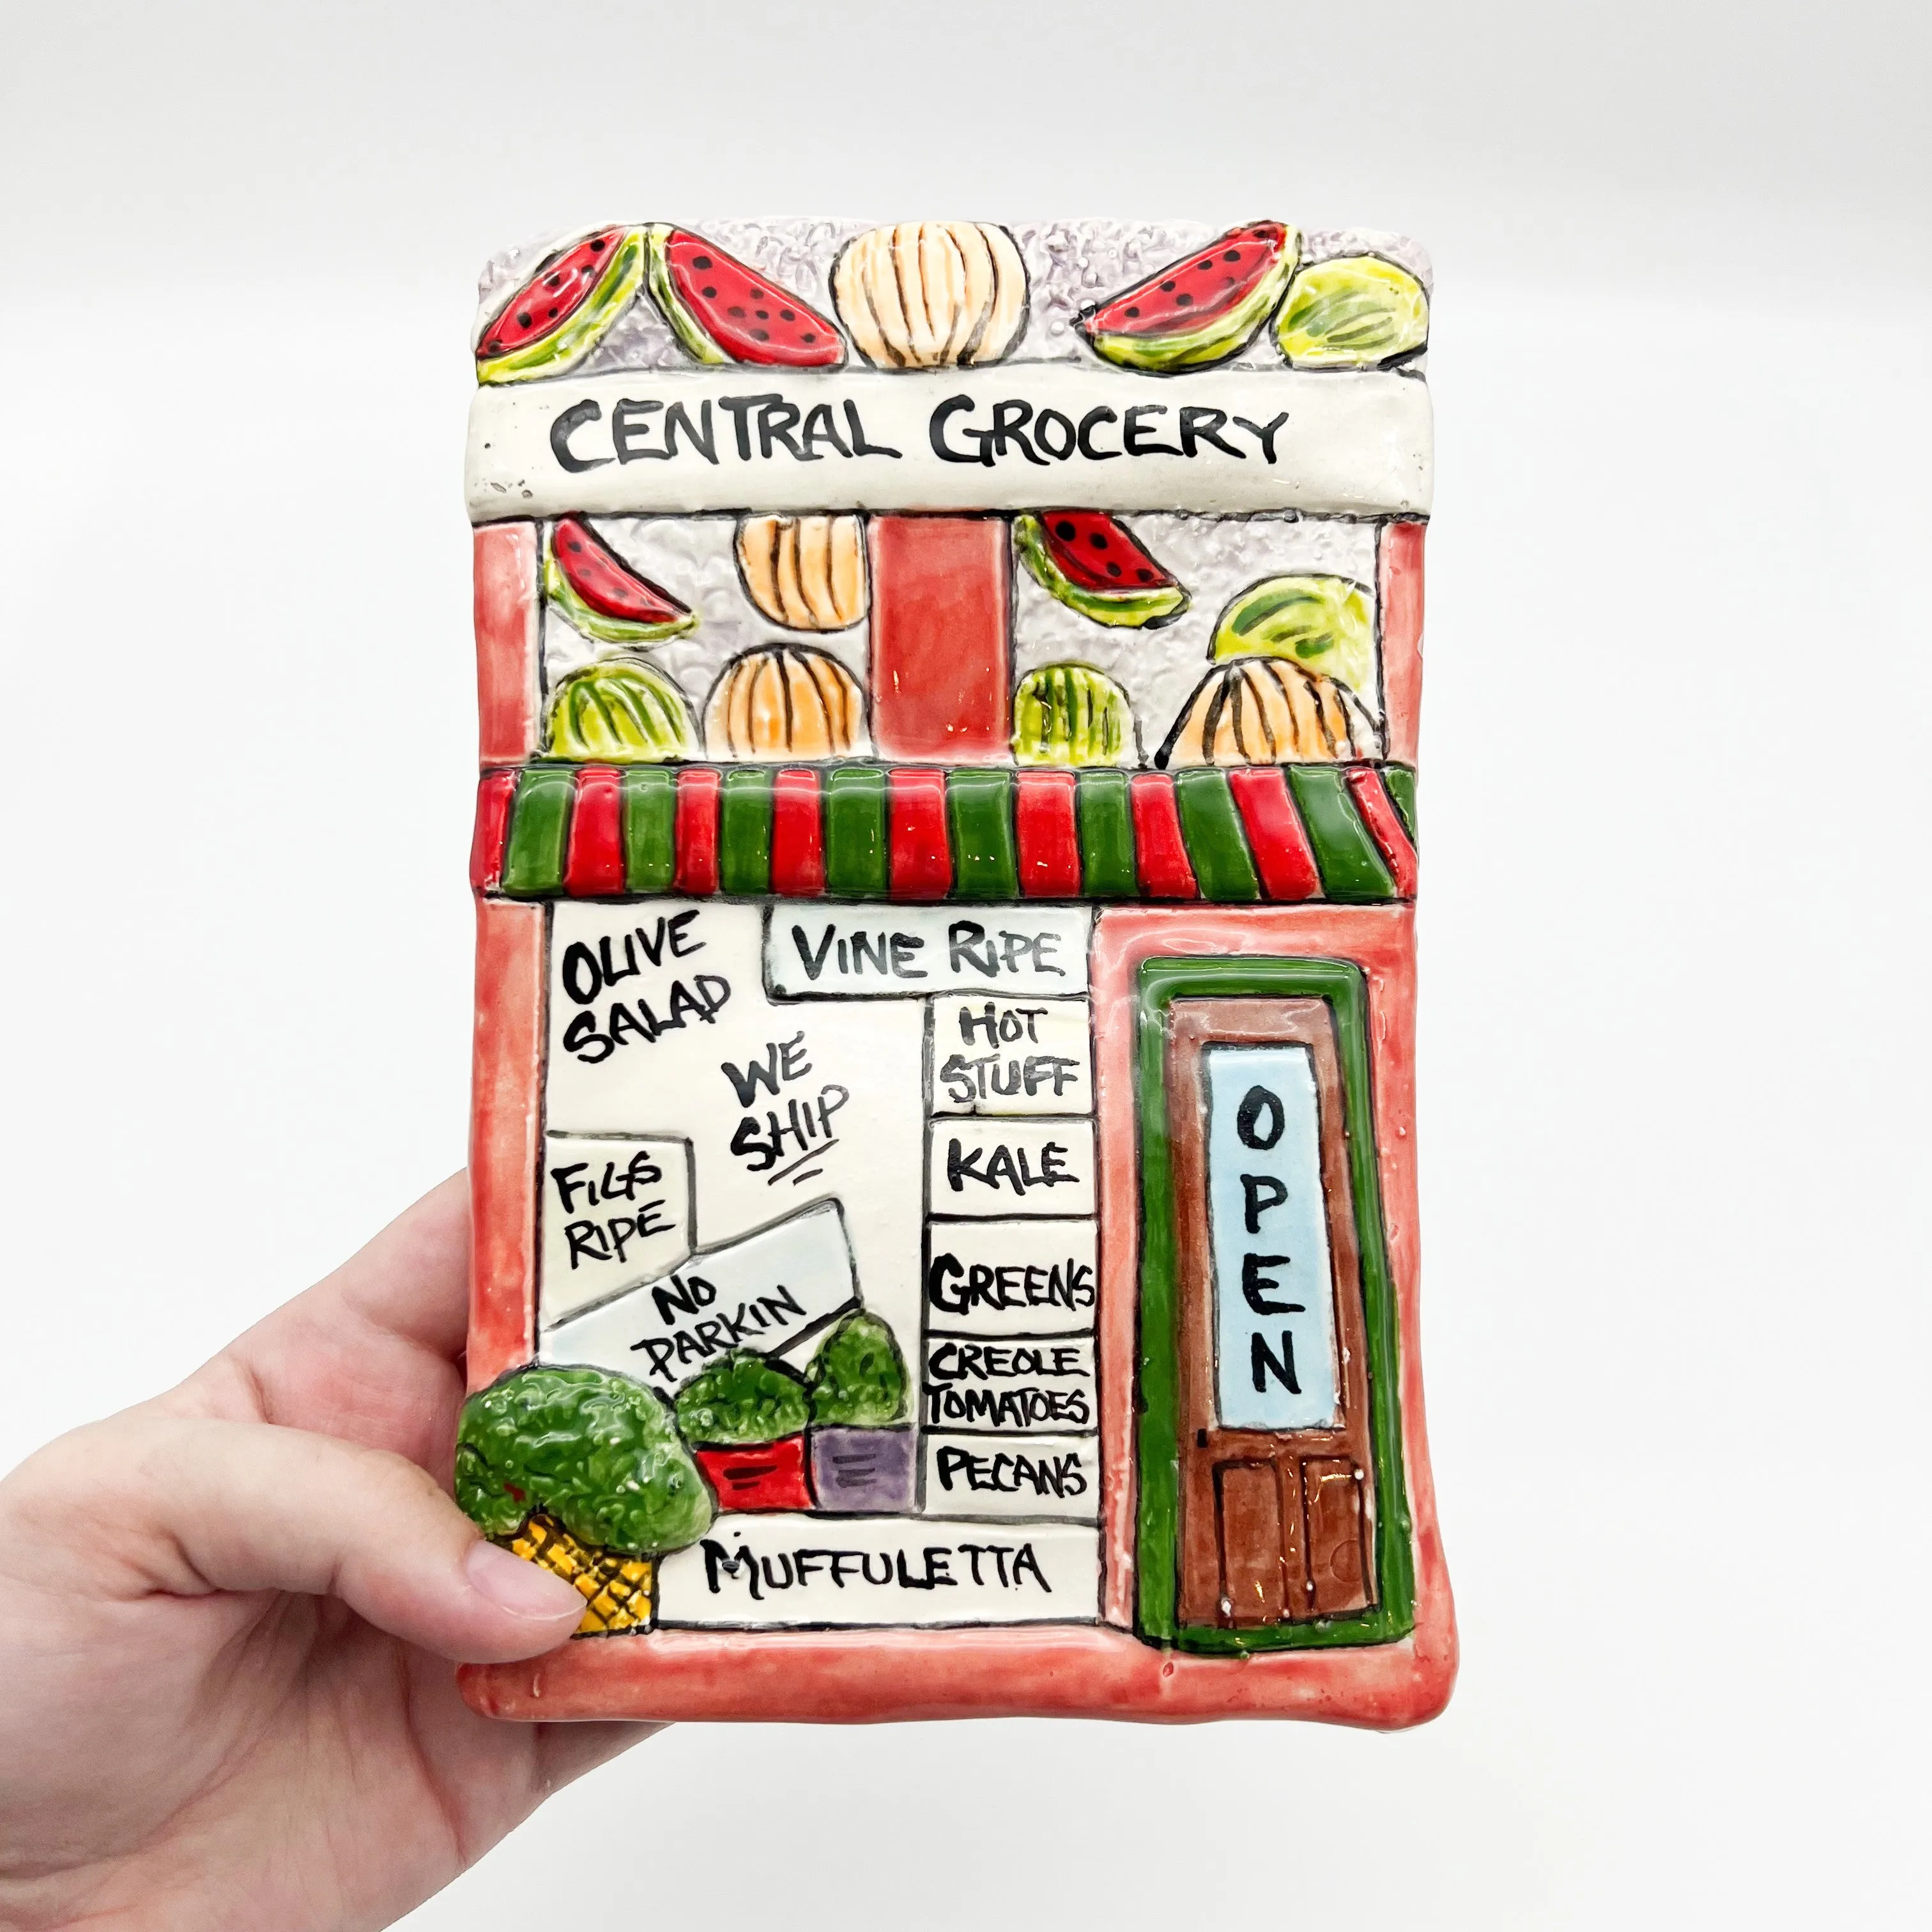 CENTRAL GROCERY
OLIVE
SALAD
VINE RIPE
WE
SHIP
HOT
STUFF
KALE
FIGS
RIPE
GREENS
NO
PARKIN
CREOLE
TOMATOES
PECANS
MUFFULETTA
OPEN